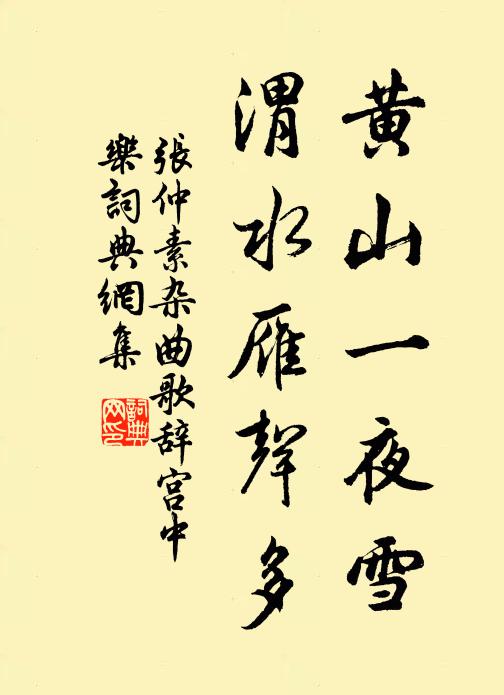 黄山一夜雪
渭水雁聲多
張仲素杂曲歌辞宫中
樂詞典網集
詞典
网印